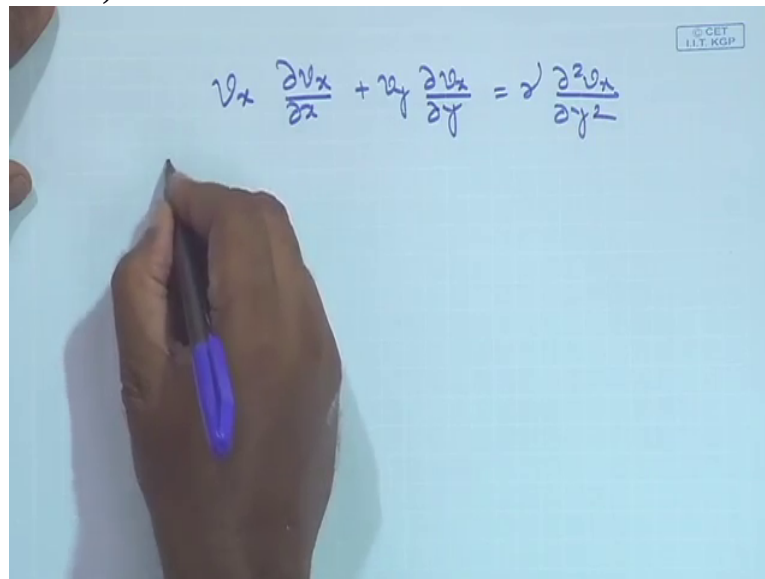 © CET
I.I.T. KGP
𝜗x ∂𝜗x/∂x + 𝜗y ∂𝜗x/∂y = 𝜈 ∂²𝜗x/∂y²